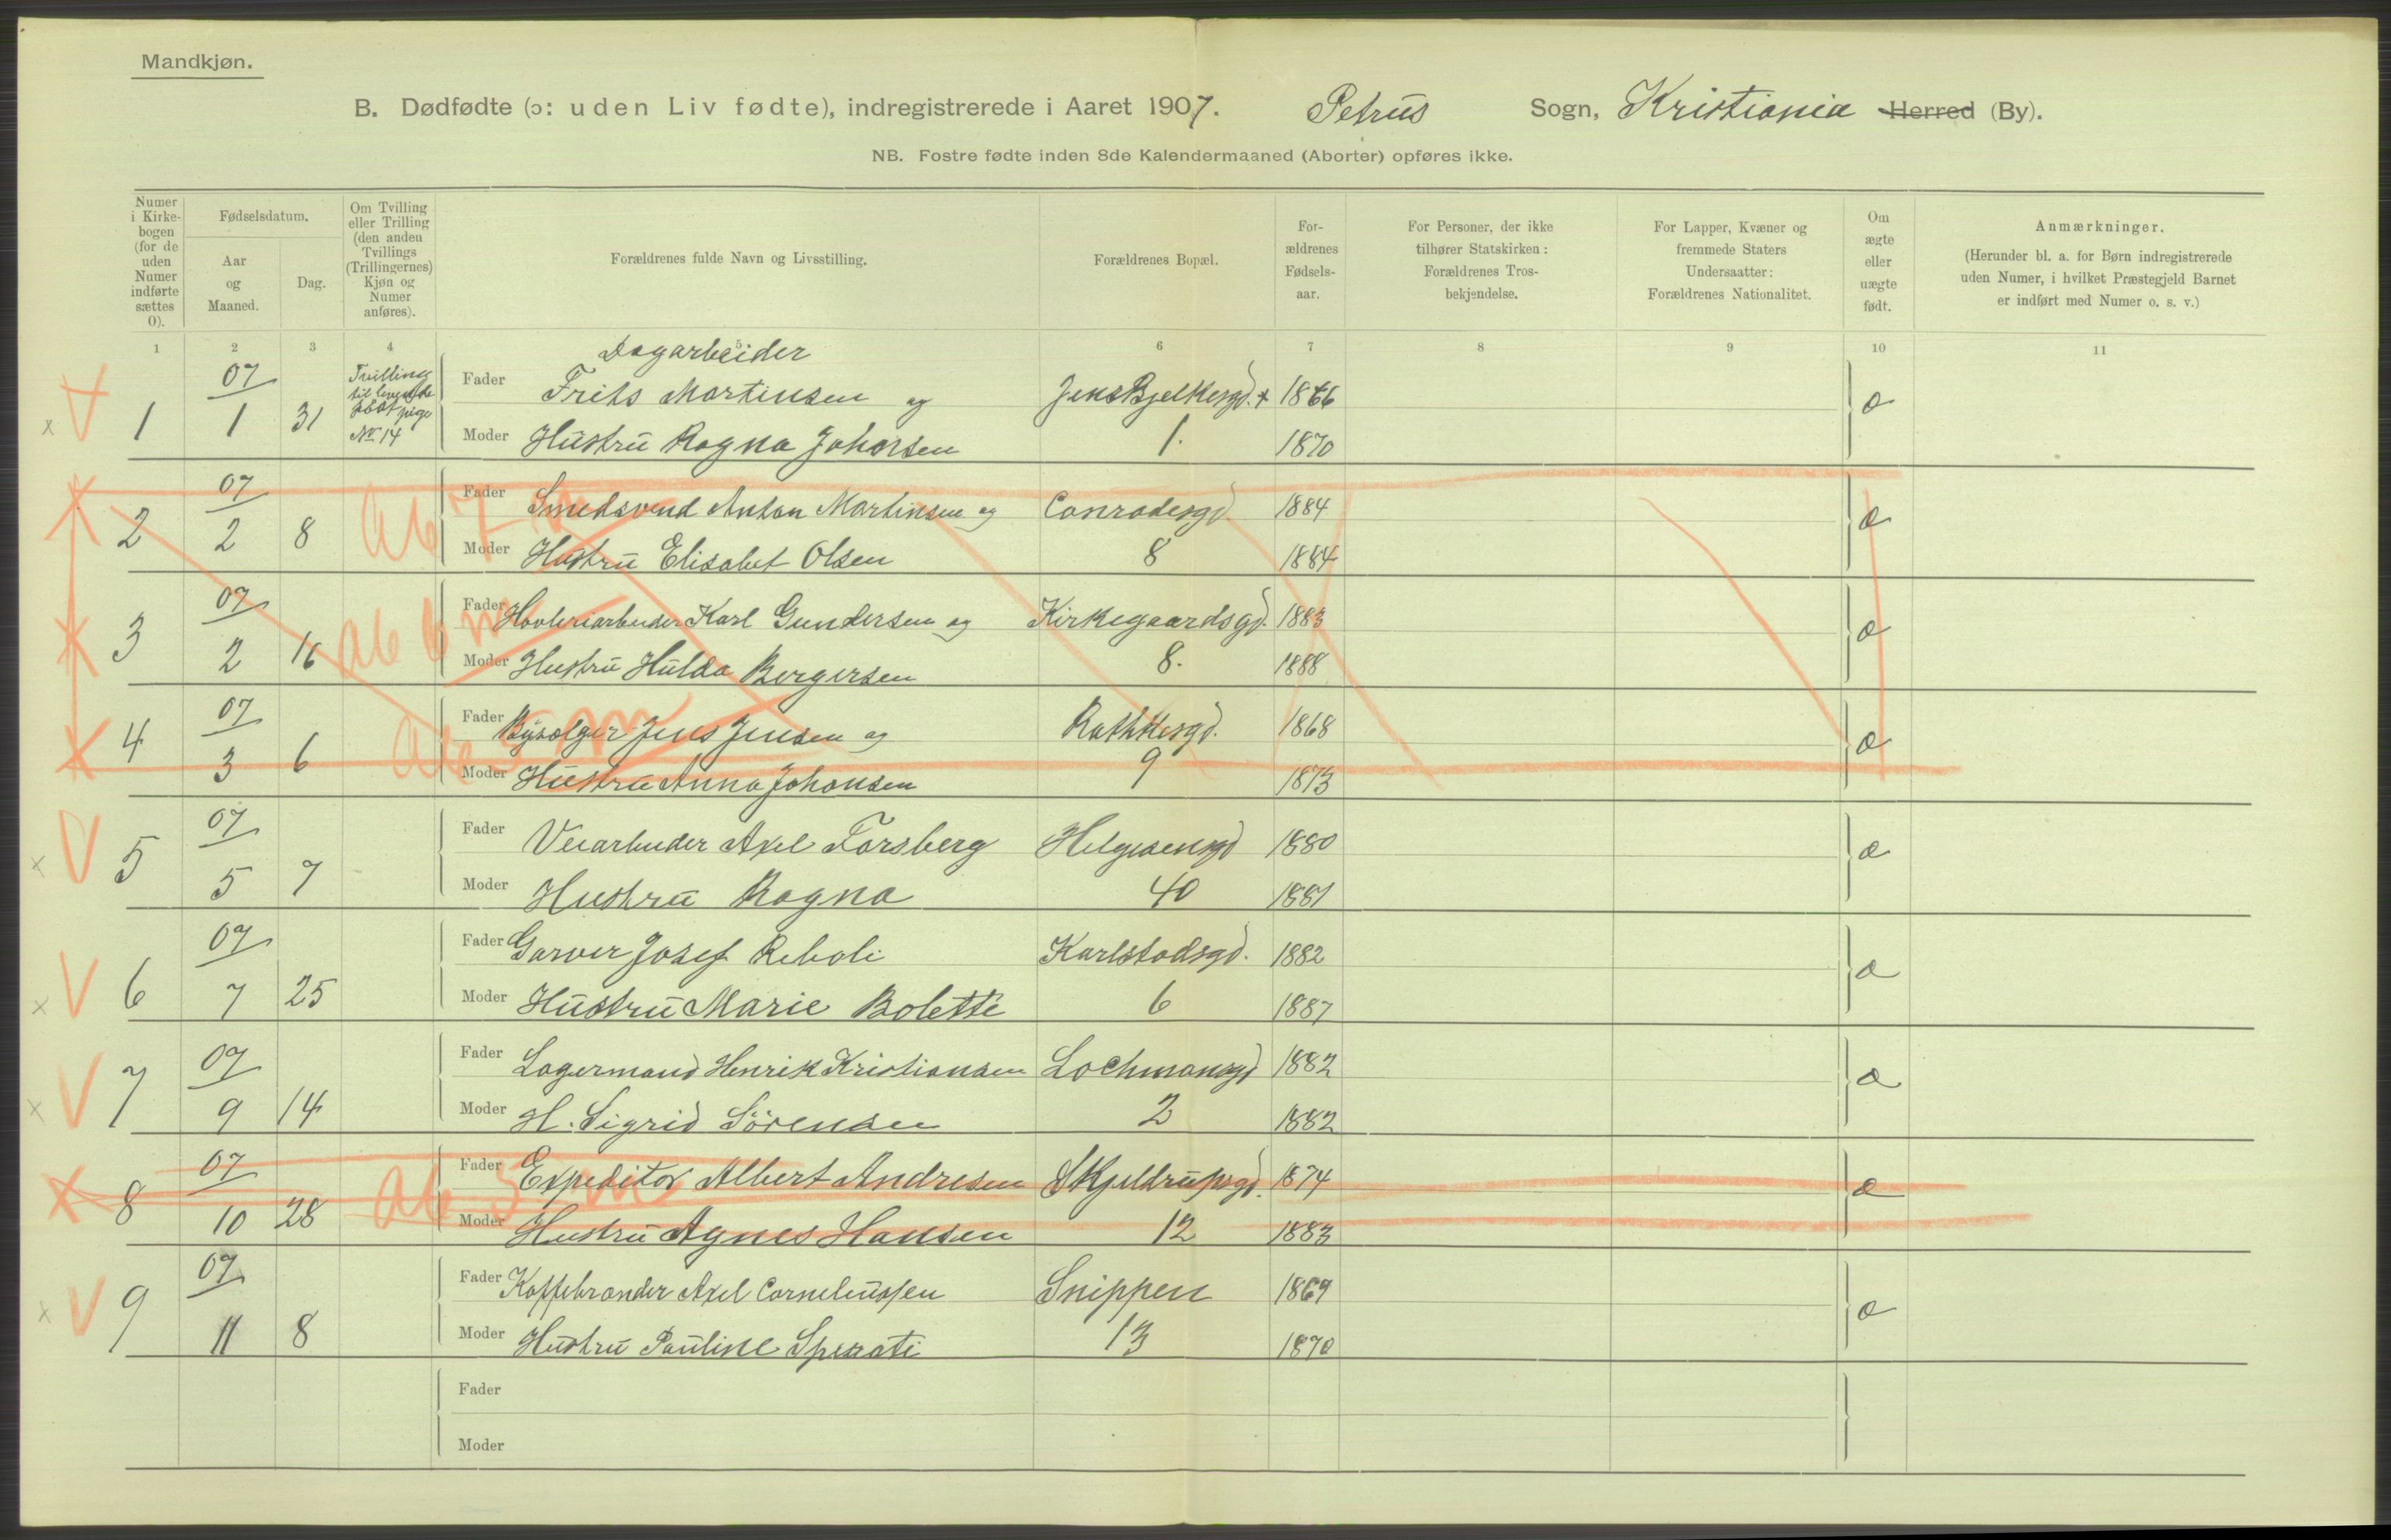 Mandkjøn.
B. Dødfødte (ɔ: uden Liv fødte), indregistrerede i Aaret 1907. Petrus Sogn, Kristiania Herred (By).
NB. Fostre fødte inden 8de Kalendermaaned (Aborter) opføres ikke.
Numer i Kirkebogen (for de uden Numer indførte sættes 0).
Fødselsdatum.
Aar og Maaned.
Dag.
Om Tvilling eller Trilling (den anden Tvillings (Trillingernes) Kjøn og Numer anføres).
Forældrenes fulde Navn og Livsstilling.
Forældrenes Bopæl.
Forældrenes Fødselsaar.
For Personer, der ikke tilhører Statskirken: Forældrenes Trosbekjendelse.
For Lapper, Kvæner og fremmede Staters Undersaatter: Forældrenes Nationalitet.
Om ægte eller uægte født.
Anmærkninger.
(Herunder bl. a. for Børn indregistrerede uden Numer, i hvilket Præstegjeld Barnet er indført med Numer o. s. v.)
1 2 3 4 5 6 7 8 9 10 11
Dagarbeider
07 Tvilling til levende født pige No 14 Fader Frits Martinsen og Jens Bjelkesgd. 1866 æ
1 1 31 Moder Hustru Ragna Johansen 1. 1870
07 Fader Smedsvend Anton Martinsen og Conradesgd. 1884 æ
2 2 8 Ab 7 m Moder Hustru Elisabet Olsen 8 1884
07 Fader Høvleriarbeider Karl Gundersen og Kirkegaardsgd. 1883 æ
3 2 16 Ab 6 m Moder Hustru Hulda Bergersen 8. 1888
07 Fader Bysælger Jens Jensen og Rathkesgd. 1868 æ
4 3 6 Ab 5 m Moder Hustru Anna Johansen 9 1873
07 Fader Veiarbeider Axel Forsberg Helgesensgd 1880 æ
5 5 7 Moder Hustru Ragna 40 1881
07 Fader Garver Josef Reboli Karlstadsgd. 1882 æ
6 7 25 Moder Hustru Marie Bolette 6 1887
07 Fader Lagermand Henrik Kristiansen Lochmansgd 1882 æ
7 9 14 Moder H. Sigrid Sörensen 2 1882
07 Fader Expeditør Albert Andresen Skjeldrupsgd. 1874 æ
8 10 28 Ab 5 m Moder Hustru Agnes Hansen 12 1883
07 Fader Kaffebrænder Axel Corneliussen Snippen 1869 æ
9 11 8 Moder Hustru Pauline Sperati 13 1870
Fader
Moder